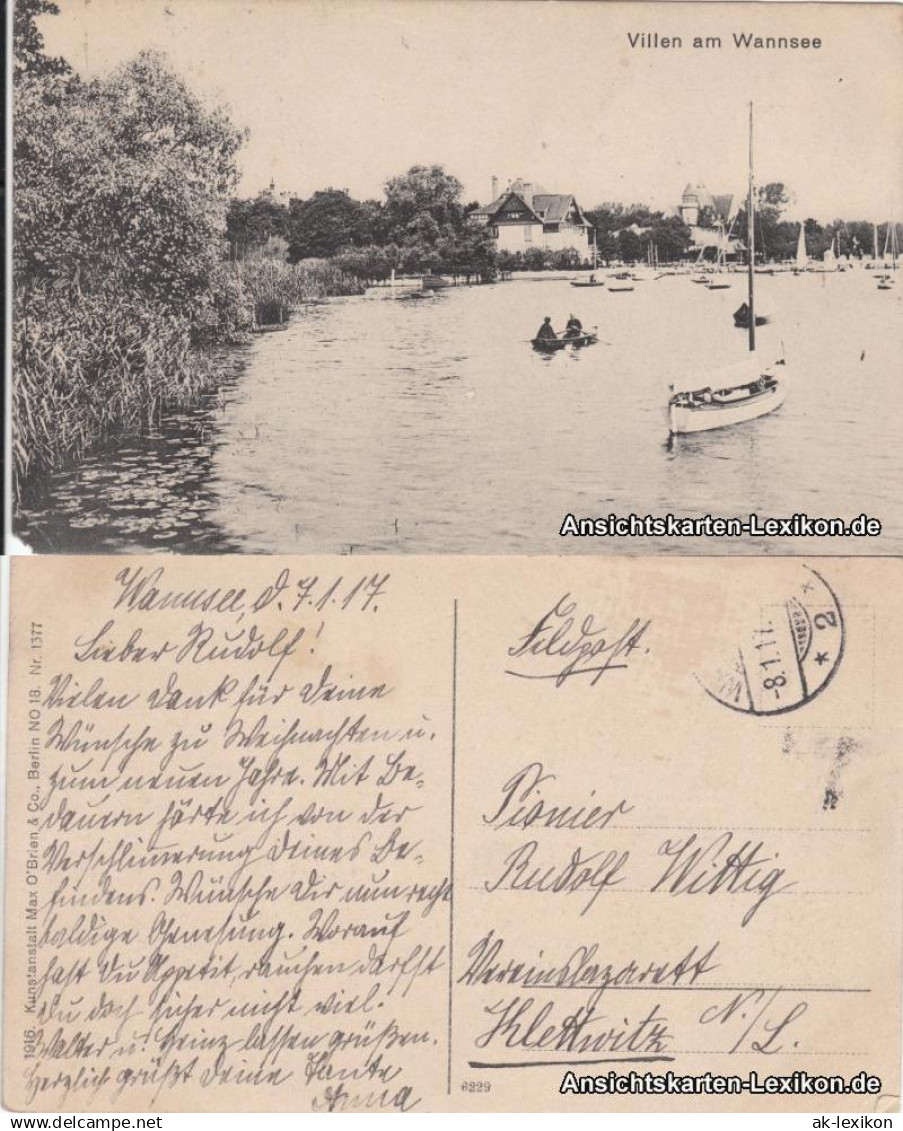 Villen am Wannsee
Ansichtskarten-Lexikon.de
Wannsee, d. 7.1.17.
Lieber Rudolf!
Vielen Dank für Deine
Wünsche zu Weihnachten u.
zum neuen Jahre. Mit Be-
dauern hörte ich von der
Verschlimmerung Deines Be-
findens. Wünsche Dir nun recht
baldige Genesung. Worauf
hast Du Appetit, rauchen darfst
Du doch sicher nicht viel.
Walter u. Heinz lassen grüßen.
Herzlich grüßt Deine Tante
Anna
1916. Kunstanstalt Max O'Brien & Co., Berlin NO 18. Nr. 1377
Feldpost.
-8.1.17.
* 2 *
Pionier
Rudolf Wittig
Vereinslazarett
Klettwitz N./L.
6229
Ansichtskarten-Lexikon.de
ak-lexikon
www.delcampe.net